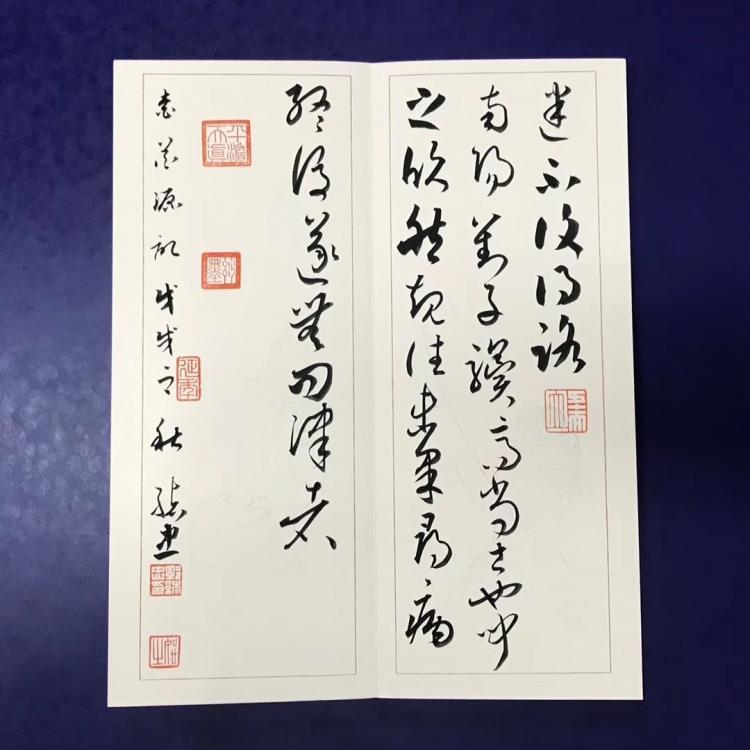 迷不復得路
南陽劉子驥高尚士也聞
之欣然規往未果尋尋病
終後遂無問津者
平澹天真
桃花源記戊戌之秋
延年